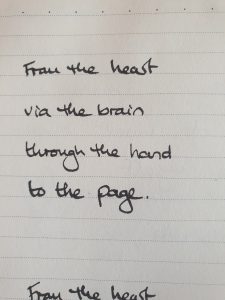 From the heart
via the brain
through the hand
to the page.
From the heart